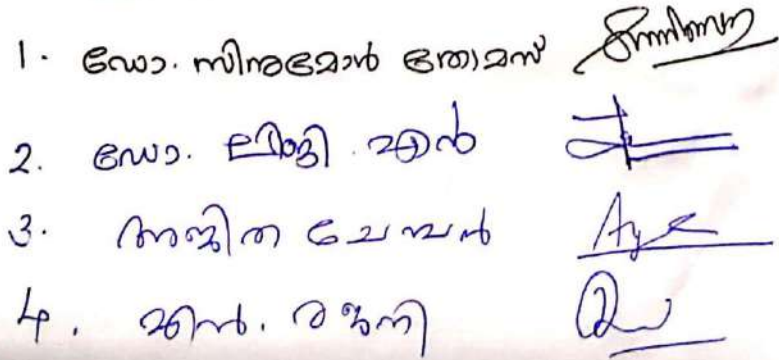 1. ഡോ. സിനുമോൾ തോമസ്
2. ഡോ. ലിജി എൻ
3. അജിത ചേമ്പൻ
4. എൻ. രജനി